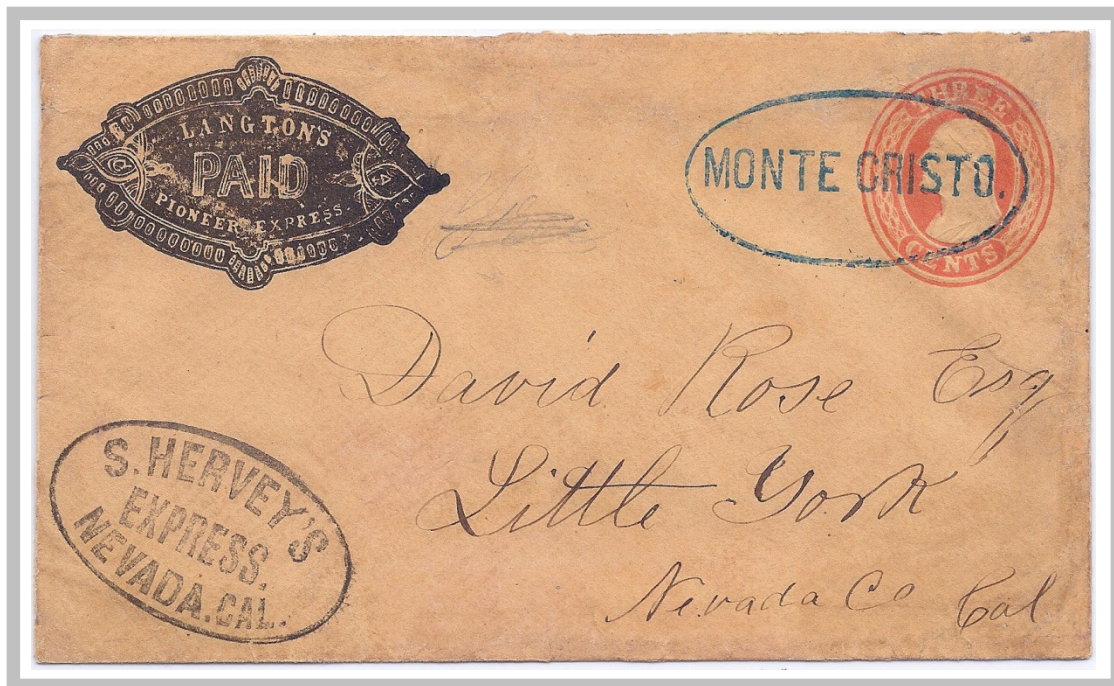 LANGTON'S
PAID
PIONEER EXPRESS.
MONTE CRISTO.
THREE
CENTS
David Rose Esq
Little York
Nevada Co Cal
S. HERVEY'S
EXPRESS,
NEVADA. CAL.